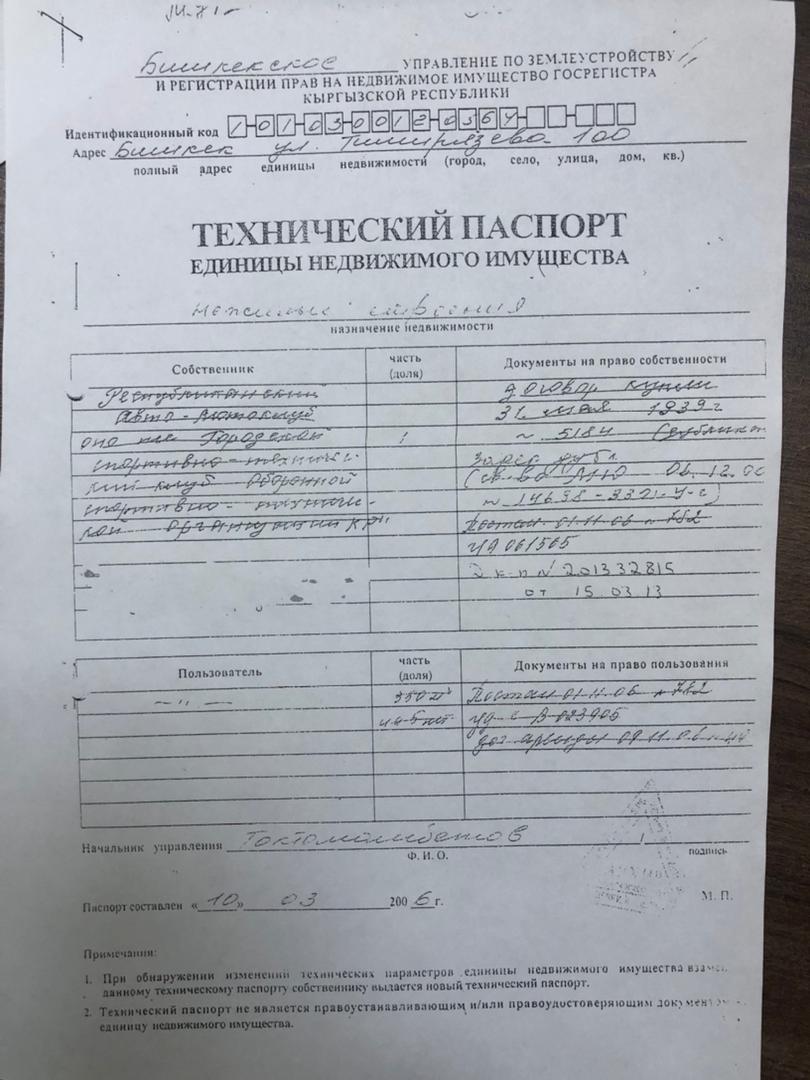 Бишкекское УПРАВЛЕНИЕ ПО ЗЕМЛЕУСТРОЙСТВУ
И РЕГИСТРАЦИИ ПРАВ НА НЕДВИЖИМОЕ ИМУЩЕСТВО ГОСРЕГИСТРА
КЫРГЫЗСКОЙ РЕСПУБЛИКИ
Идентификационный код 1-01-03-0012-0364
Адрес Бишкек ул. Тимирязева 100
полный адрес единицы недвижимости (город, село, улица, дом, кв.)
ТЕХНИЧЕСКИЙ ПАСПОРТ
ЕДИНИЦЫ НЕДВИЖИМОГО ИМУЩЕСТВА
нежилые строения
назначение недвижимости
Собственник часть (доля) Документы на право собственности
Республиканский договор купли
Авто-Мотоклуб 31 мая 1939г
она же Городской 1 № 5184 (дубликат
спортивно-техниче- зарег дубл.
кий клуб Оборонной (св-во МЮ 06.12.00
спортивно-техниче- № 14638-3321-У-е)
кой организации КР" Постан 01.11.06 № 782
УД 061565
Д к-п № 201332815
от 15.03.13
Пользователь часть (доля) Документы на право пользования
— " — 350 Постан 01.11.06 № 782
445 уд с В 023905
дог аренды 09.11.06
Начальник управления Токтомамбетов
Ф. И. О. подпись
Паспорт составлен «10» 03 2006г. М. П.
Примечания:
1. При обнаружении изменений технических параметров единицы недвижимого имущества взамен
данному техническому паспорту собственнику выдается новый технический паспорт.
2. Технический паспорт не является правоустанавливающим и/или правоудостоверяющим
единицу недвижимого имущества.